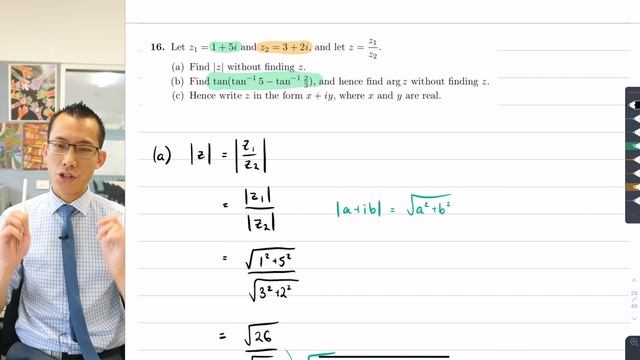 16. Let z₁ = 1 + 5i and z₂ = 3 + 2i, and let z = z₁/z₂.
(a) Find |z| without finding z.
(b) Find tan(tan⁻¹ 5 − tan⁻¹ 2/3), and hence find arg z without finding z.
(c) Hence write z in the form x + iy, where x and y are real.
(a) |z| = |z₁/z₂|
= |z₁|/|z₂| |a+ib| = √(a²+b²)
= √(1²+5²)/√(3²+2²)
= √26
29
/
46